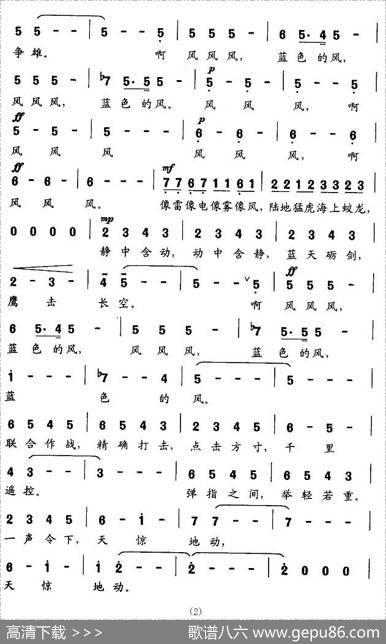 5 5 - - | 5 - - 5 | 5 5 5 - | 6 5· 4 5 - |
争 雄。 啊 风 风 风, 蓝 色 的 风,
5 5 5 - | ♭7 5· 5 5 - | 5 - 5 - | 5 - - 5 |
p
风 风 风, 蓝 色 的 风。 风 风 风, 啊
ff p
5 - 5 - | 5 - - - | 6 - 6 - | 6 - - 6 |
风 风 风 风 风 风, 啊
ff mf
6 - 6 - | 6 - - - | 7 7 6 7 1 1 6 1 | 2 2 1 2 3 3 2 3 |
风 风 风。 像雷像电像雾像风, 陆地猛虎海上蛟龙,
mp
0 0 0 0 | 2 3 4 3 | 2 3 4 3 | 2 3 4 5 |
静 中 含 动, 动 中 含 静, 蓝 天 砺 剑,
ff
2 - 3 - | 4 5 - - | 5 - - ∨ 5 | 5 5 5 - |
鹰 击 长 空。 啊 风 风 风,
6 5· 4 5 - | 5 5 5 - | ♭7 5· 5 5 - |
蓝 色 的 风, 风 风 风, 蓝 色 的 风,
i - - - | ♭7 - - 4 | 5 - - - | 5 - - - |
蓝 色 的 风。
6 5 4 5 | 6 5 4 3 | 6 5 4 5 | 6 - 5 - |
联 合 作 战, 精 确 打 击, 点 击 方 寸, 千 里
4 3 - - | 3 - - - | 6 5 4 5 | 6 5 4 3 |
遥 控。 弹 指 之 间, 举 轻 若 重。
2 3 4 5 | 6 - i - | i 7 - - | 7 - - - |
一 声 令 下, 天 惊 地 动,
6 - i - | i 2 - - | 2 - - - | 2 0 0 0
天 惊 地 动。
(2)
高清下载 >>> 歌谱八六 www.gepu86.com